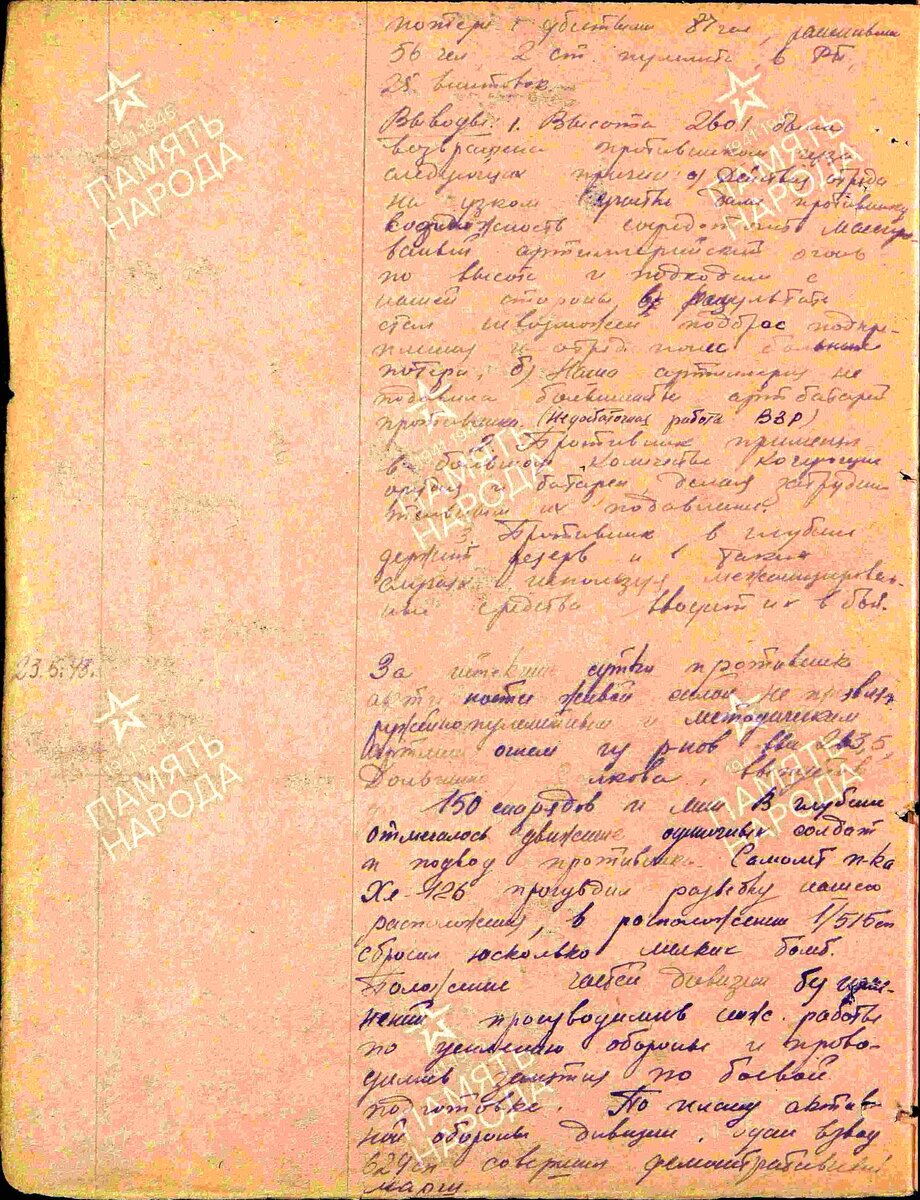 потери: убитыми 87 чел, ранеными
56 чел, 2 ст пулемета,
25 винтовок.
Выводы: 1. Высота 260,1 была
возвращена противником из-за
следующих причин: а) Действия отряда
на узком участке дали противнику
возможность сосредоточить массиро
ванный артиллерийский огонь
по высоте и подходам с
нашей стороны, в результате
стал невозможен подброс подкре-
пления и отряд понес большие
потери, б) Наша артиллерия не
подавила большинства артбатарей
противника. (Недостаточная работа ВЗР)
2. Противник применял
в большом количестве кочующие
орудия и батареи делая затрудни
тельным их подавление.
Противник в глубине
держит резерв и в таких
случаях используя механизирован-
ные средства вводит их в бой.
23.5.43.
За истекшие сутки противник
активности живой силой не проявил
ружейно-пулеметным и методическим
огнем
150 снарядов и мин. В глубине
отмечалось движение одиночных солдат
и подвод противника. Самолет п-ка
Хе-126 производил разведку нашего
расположения, в расположении 1/516 сп
сбросил несколько мелких бомб.
Положение частей дивизии без изме-
нений производились инж. работы
по усилению обороны и прово-
дились занятия по боевой
подготовке. По плану актив-
ной обороны дивизии, один взвод
совершил демонстративный
марш.
1941 1945
ПАМЯТЬ
НАРОДА
1941 1945
ПАМЯТЬ
НАРОДА
1941 1945
ПАМЯТЬ
НАРОДА
1941 1945
ПАМЯТЬ
НАРОДА
1941 1945
ПАМЯТЬ
НАРОДА
ПАМЯТЬ
НАРОДА